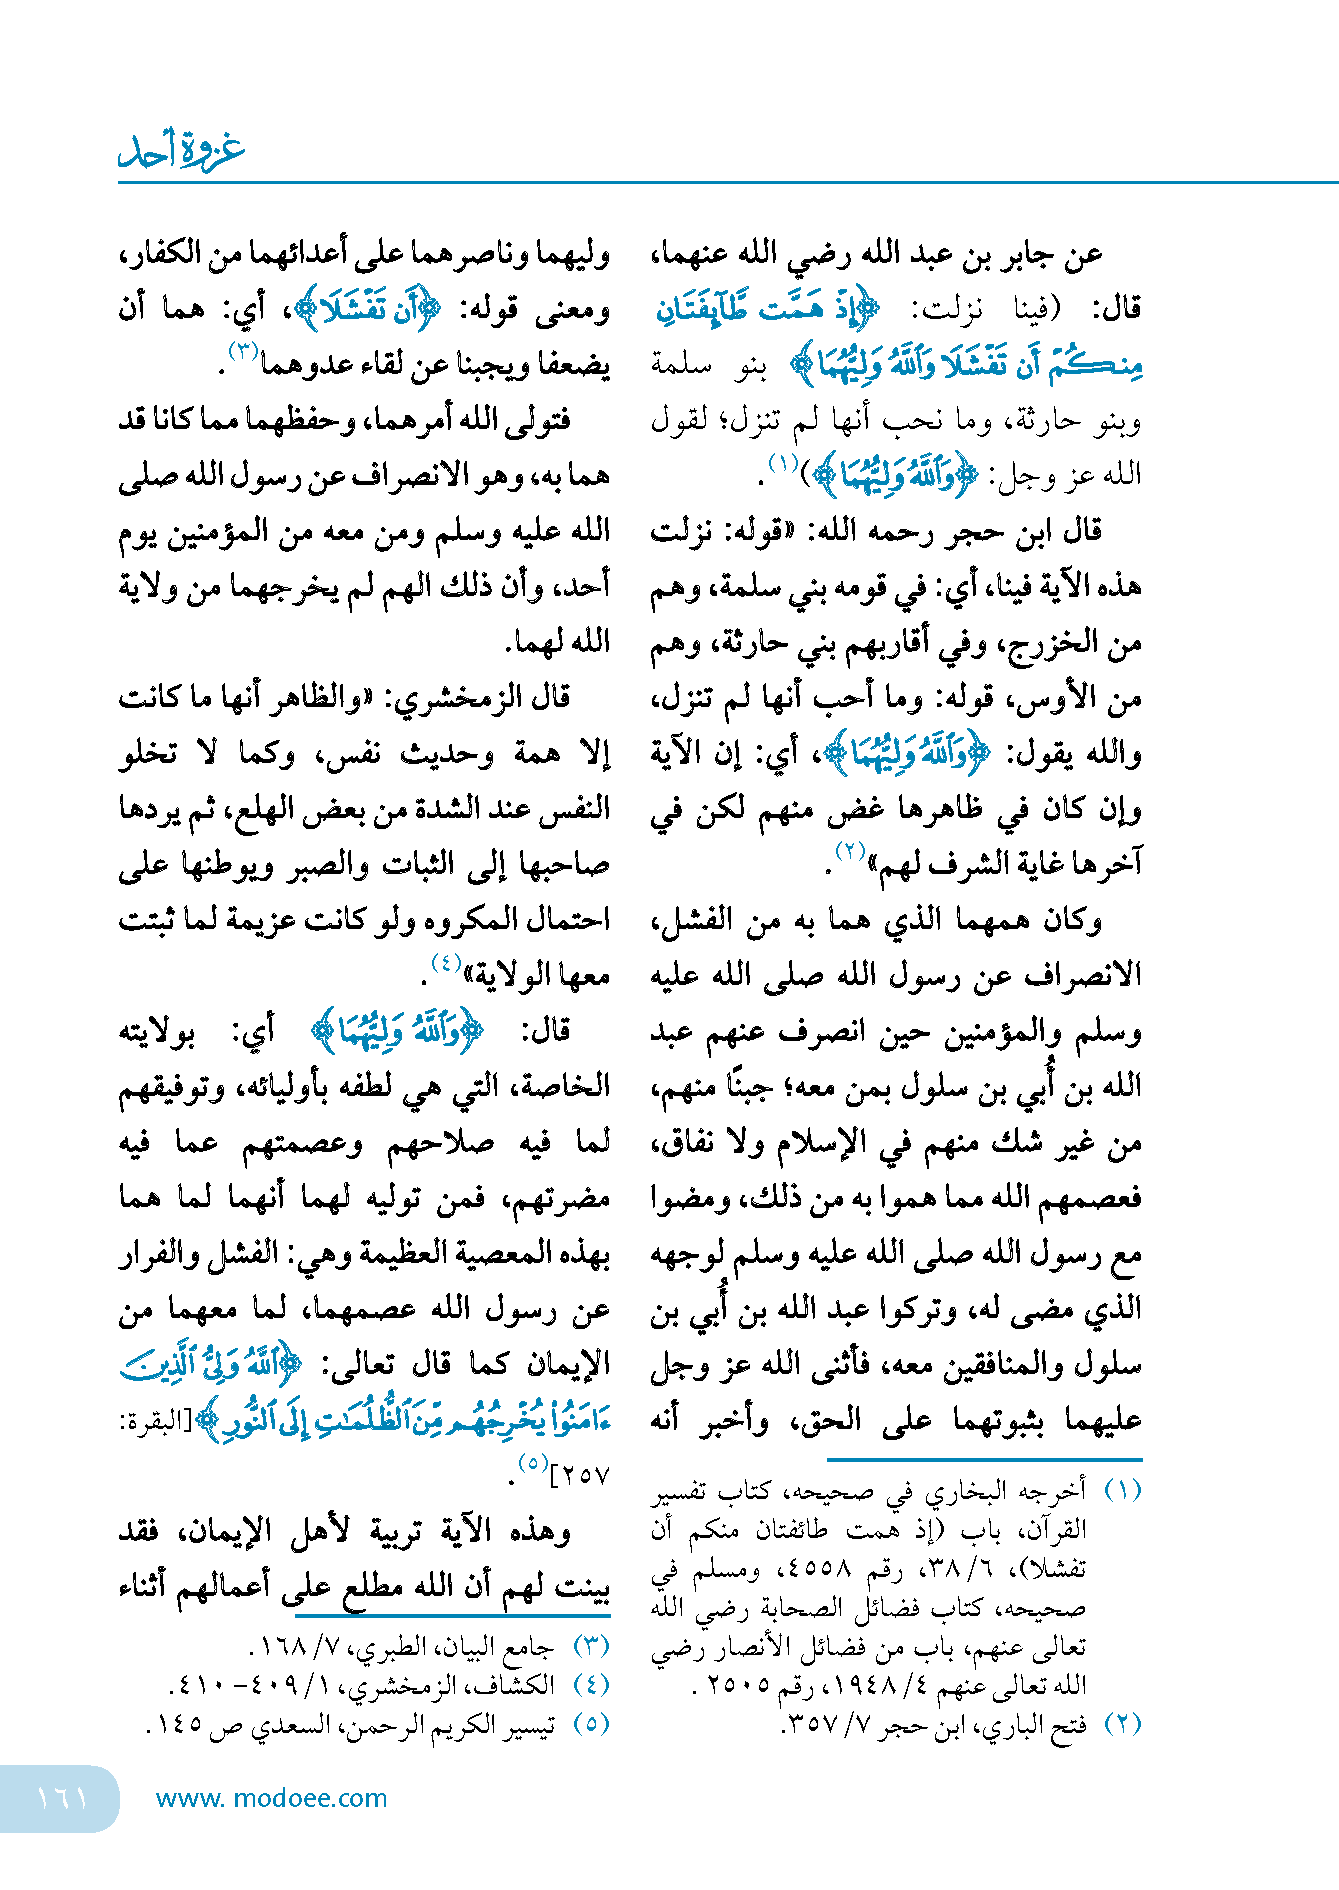 غزوة أحد
عن جابر بن عبد الله رضي الله عنهما،
قال: (فينا نزلت: ﴿إِذْ هَمَّت طَّآئِفَتَانِ
مِنكُمْ أَن تَفْشَلَا وَٱللَّهُ وَلِيُّهُمَا﴾ بنو سلمة
وبنو حارثة، وما نحب أنها لم تنزل؛ لقول
الله عز وجل: ﴿وَٱللَّهُ وَلِيُّهُمَا﴾)(١).
قال ابن حجر رحمه الله: «قوله: نزلت
هذه الآية فينا، أي: في قومه بني سلمة، وهم
من الخزرج، وفي أقاربهم بني حارثة، وهم
من الأوس، قوله: وما أحب أنها لم تنزل،
والله يقول: ﴿وَٱللَّهُ وَلِيُّهُمَا﴾، أي: إن الآية
وإن كان في ظاهرها غض منهم لكن في
آخرها غاية الشرف لهم»(٢).
وكان همهما الذي هما به من الفشل،
الانصراف عن رسول الله صلى الله عليه
وسلم والمؤمنين حين انصرف عنهم عبد
الله بن أُبي بن سلول بمن معه؛ جبنًا منهم،
من غير شك منهم في الإسلام ولا نفاق،
فعصمهم الله مما هموا به من ذلك، ومضوا
مع رسول الله صلى الله عليه وسلم لوجهه
الذي مضى له، وتركوا عبد الله بن أُبي بن
سلول والمنافقين معه، فأثنى الله عز وجل
عليهما بثبوتهما على الحق، وأخبر أنه
(١) أخرجه البخاري في صحيحه، كتاب تفسير
القرآن، باب (إذ همت طائفتان منكم أن
تفشلا)، ٦/ ٣٨، رقم ٤٥٥٨، ومسلم في
صحيحه، كتاب فضائل الصحابة رضي الله
تعالى عنهم، باب من فضائل الأنصار رضي
الله تعالى عنهم ٤/ ١٩٤٨، رقم ٢٥٠٥ .
(٢) فتح الباري، ابن حجر ٧/ ٣٥٧.
وليهما وناصرهما على أعدائهما من الكفار،
ومعنى قوله: ﴿أَن تَفْشَلَا﴾، أي: هما أن
يضعفا ويجبنا عن لقاء عدوهما(٣).
فتولى الله أمرهما، وحفظهما مما كانا قد
هما به، وهو الانصراف عن رسول الله صلى
الله عليه وسلم ومن معه من المؤمنين يوم
أحد، وأن ذلك الهم لم يخرجهما من ولاية
الله لهما.
قال الزمخشري: «والظاهر أنها ما كانت
إلا همة وحديث نفس، وكما لا تخلو
النفس عند الشدة من بعض الهلع، ثم يردها
صاحبها إلى الثبات والصبر ويوطنها على
احتمال المكروه ولو كانت عزيمة لما ثبتت
معها الولاية»(٤).
قال: ﴿وَٱللَّهُ وَلِيُّهُمَا﴾ أي: بولايته
الخاصة، التي هي لطفه بأوليائه، وتوفيقهم
لما فيه صلاحهم وعصمتهم عما فيه
مضرتهم، فمن توليه لهما أنهما لما هما
بهذه المعصية العظيمة وهي: الفشل والفرار
عن رسول الله عصمهما، لما معهما من
الإيمان كما قال تعالى: ﴿ٱللَّهُ وَلِىُّ ٱلَّذِينَ
ءَامَنُوا۟ يُخْرِجُهُم مِّنَ ٱلظُّلُمَـٰتِ إِلَى ٱلنُّورِ﴾[البقرة:
٢٥٧](٥).
وهذه الآية تربية لأهل الإيمان، فقد
بينت لهم أن الله مطلع على أعمالهم أثناء
(٣) جامع البيان، الطبري، ٧/ ١٦٨.
(٤) الكشاف، الزمخشري، ١/ ٤٠٩- ٤١٠.
(٥) تيسير الكريم الرحمن، السعدي ص ١٤٥.
www. modoee.com
١٦١